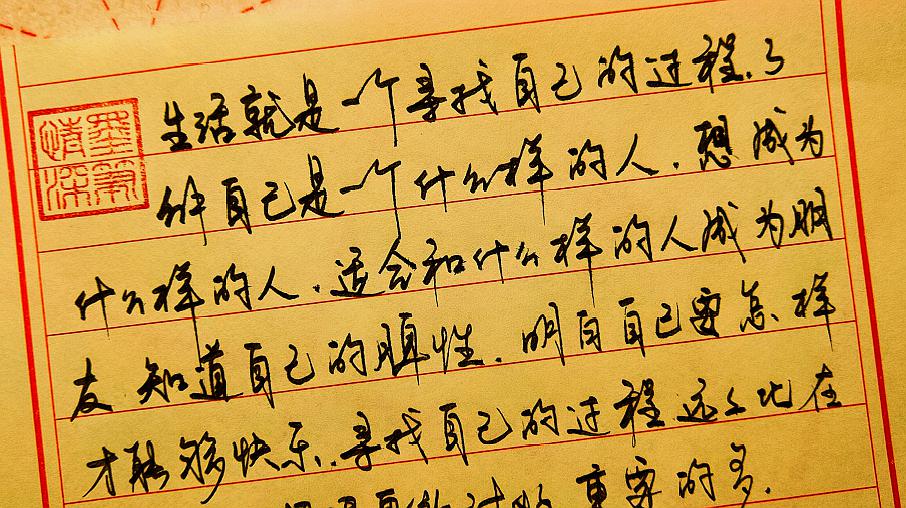 生活就是一个寻找自己的过程.了
解自己是一个什么样的人.想成为
什么样的人.适合和什么样的人成为朋
友 知道自己的脾性.明白自己要怎样
才能够快乐.寻找自己的过程远远比在
重要的多.
墨笔
情深